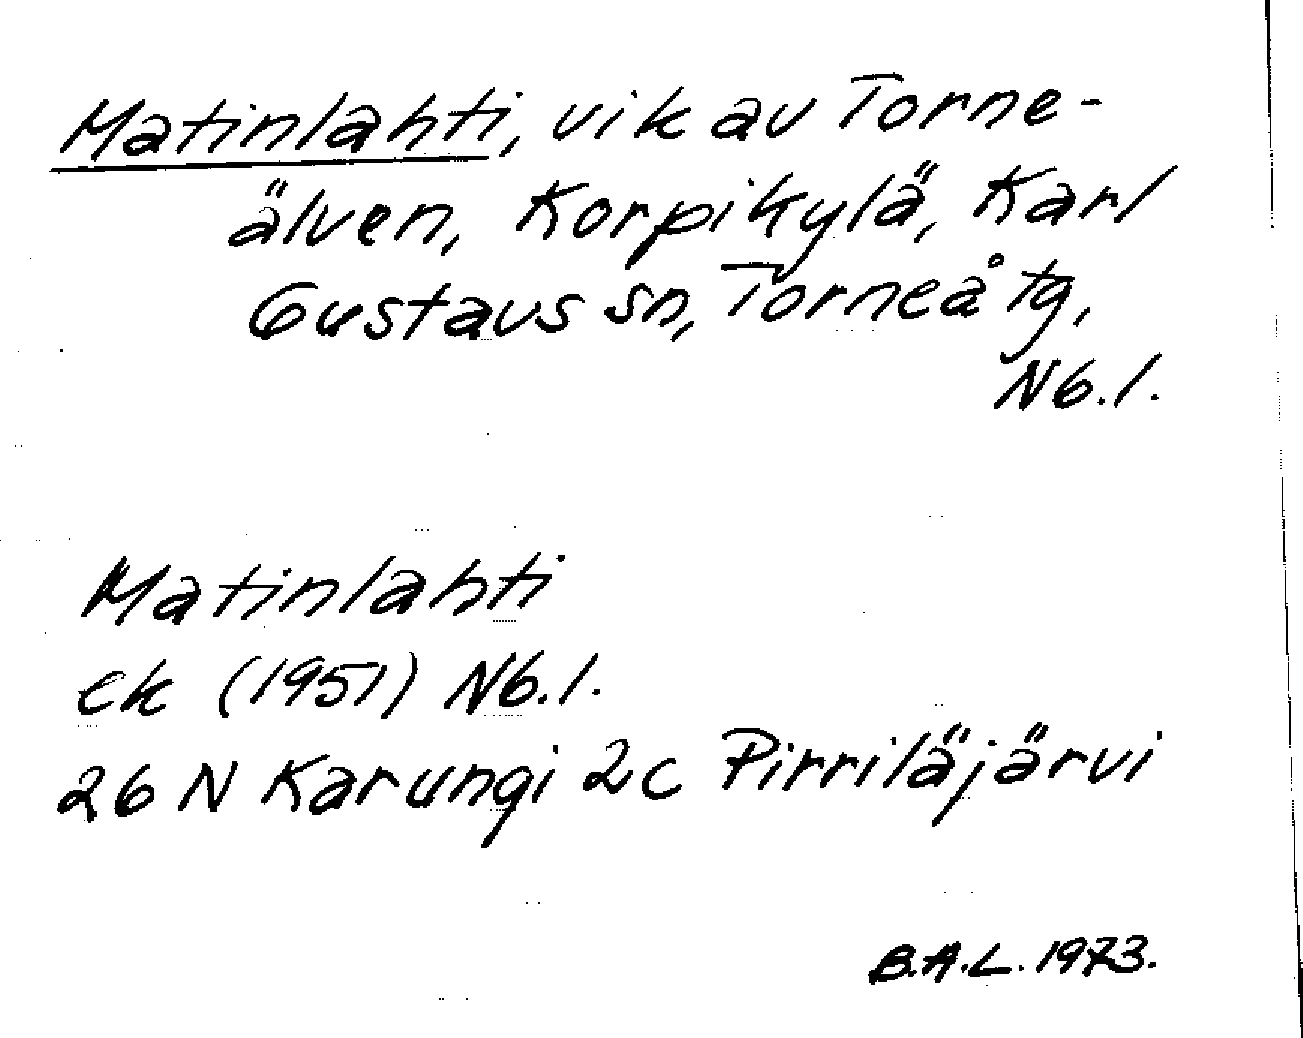 Matinlahti, vik av Torne-
älven, Korpikylä, Karl
Gustavs sn, Torneå tg,
Nb.l.
Matinlahti
ek (1951) Nb.l.
26 N Karungi 2c Pirriläjärvi
B.A.L. 1973.